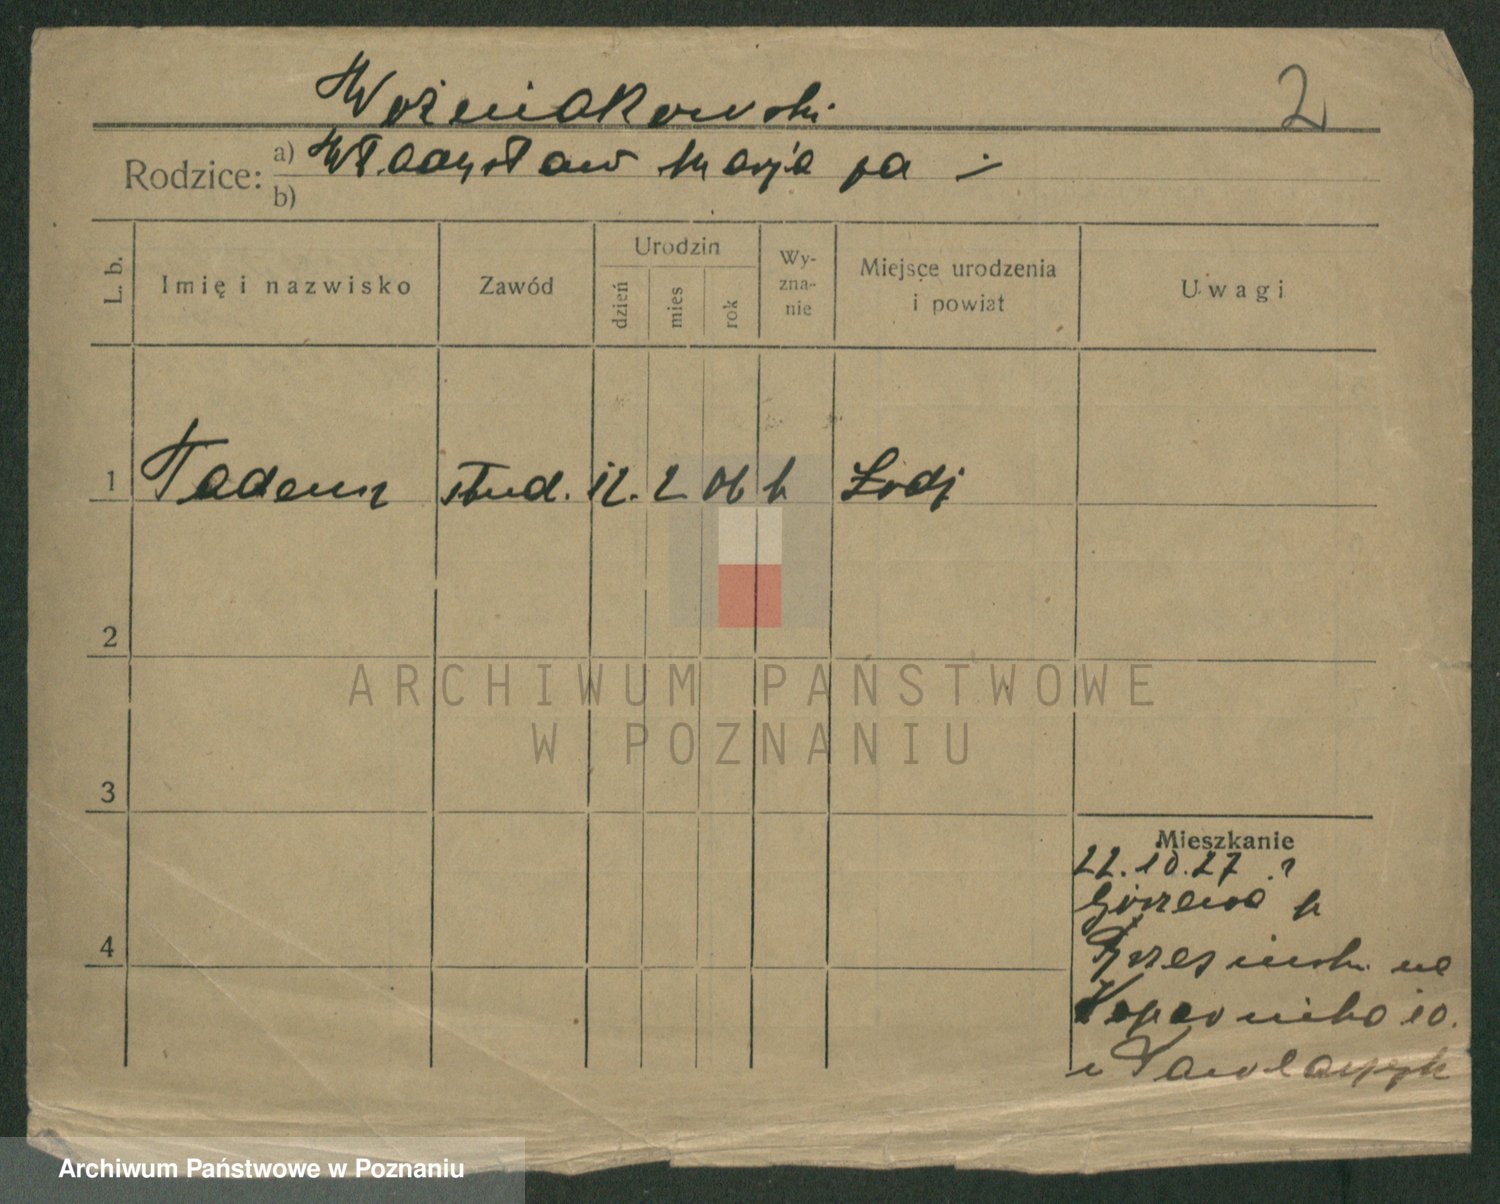 Woźniakowski
2
Rodzice: a) Władysław Marja
b)
L. b.
Imię i nazwisko
Zawód
Urodzin
dzień
mies
rok
Wy-
zna-
nie
Miejsce urodzenia
i powiat
Uwagi
1 Tadeusz stud. 12. 2 06 k Łodź
2
3
4
Mieszkanie
22.10.27
Kopernika 10.
ARCHIWUM PAŃSTWOWE
W POZNANIU
Archiwum Państwowe w Poznaniu